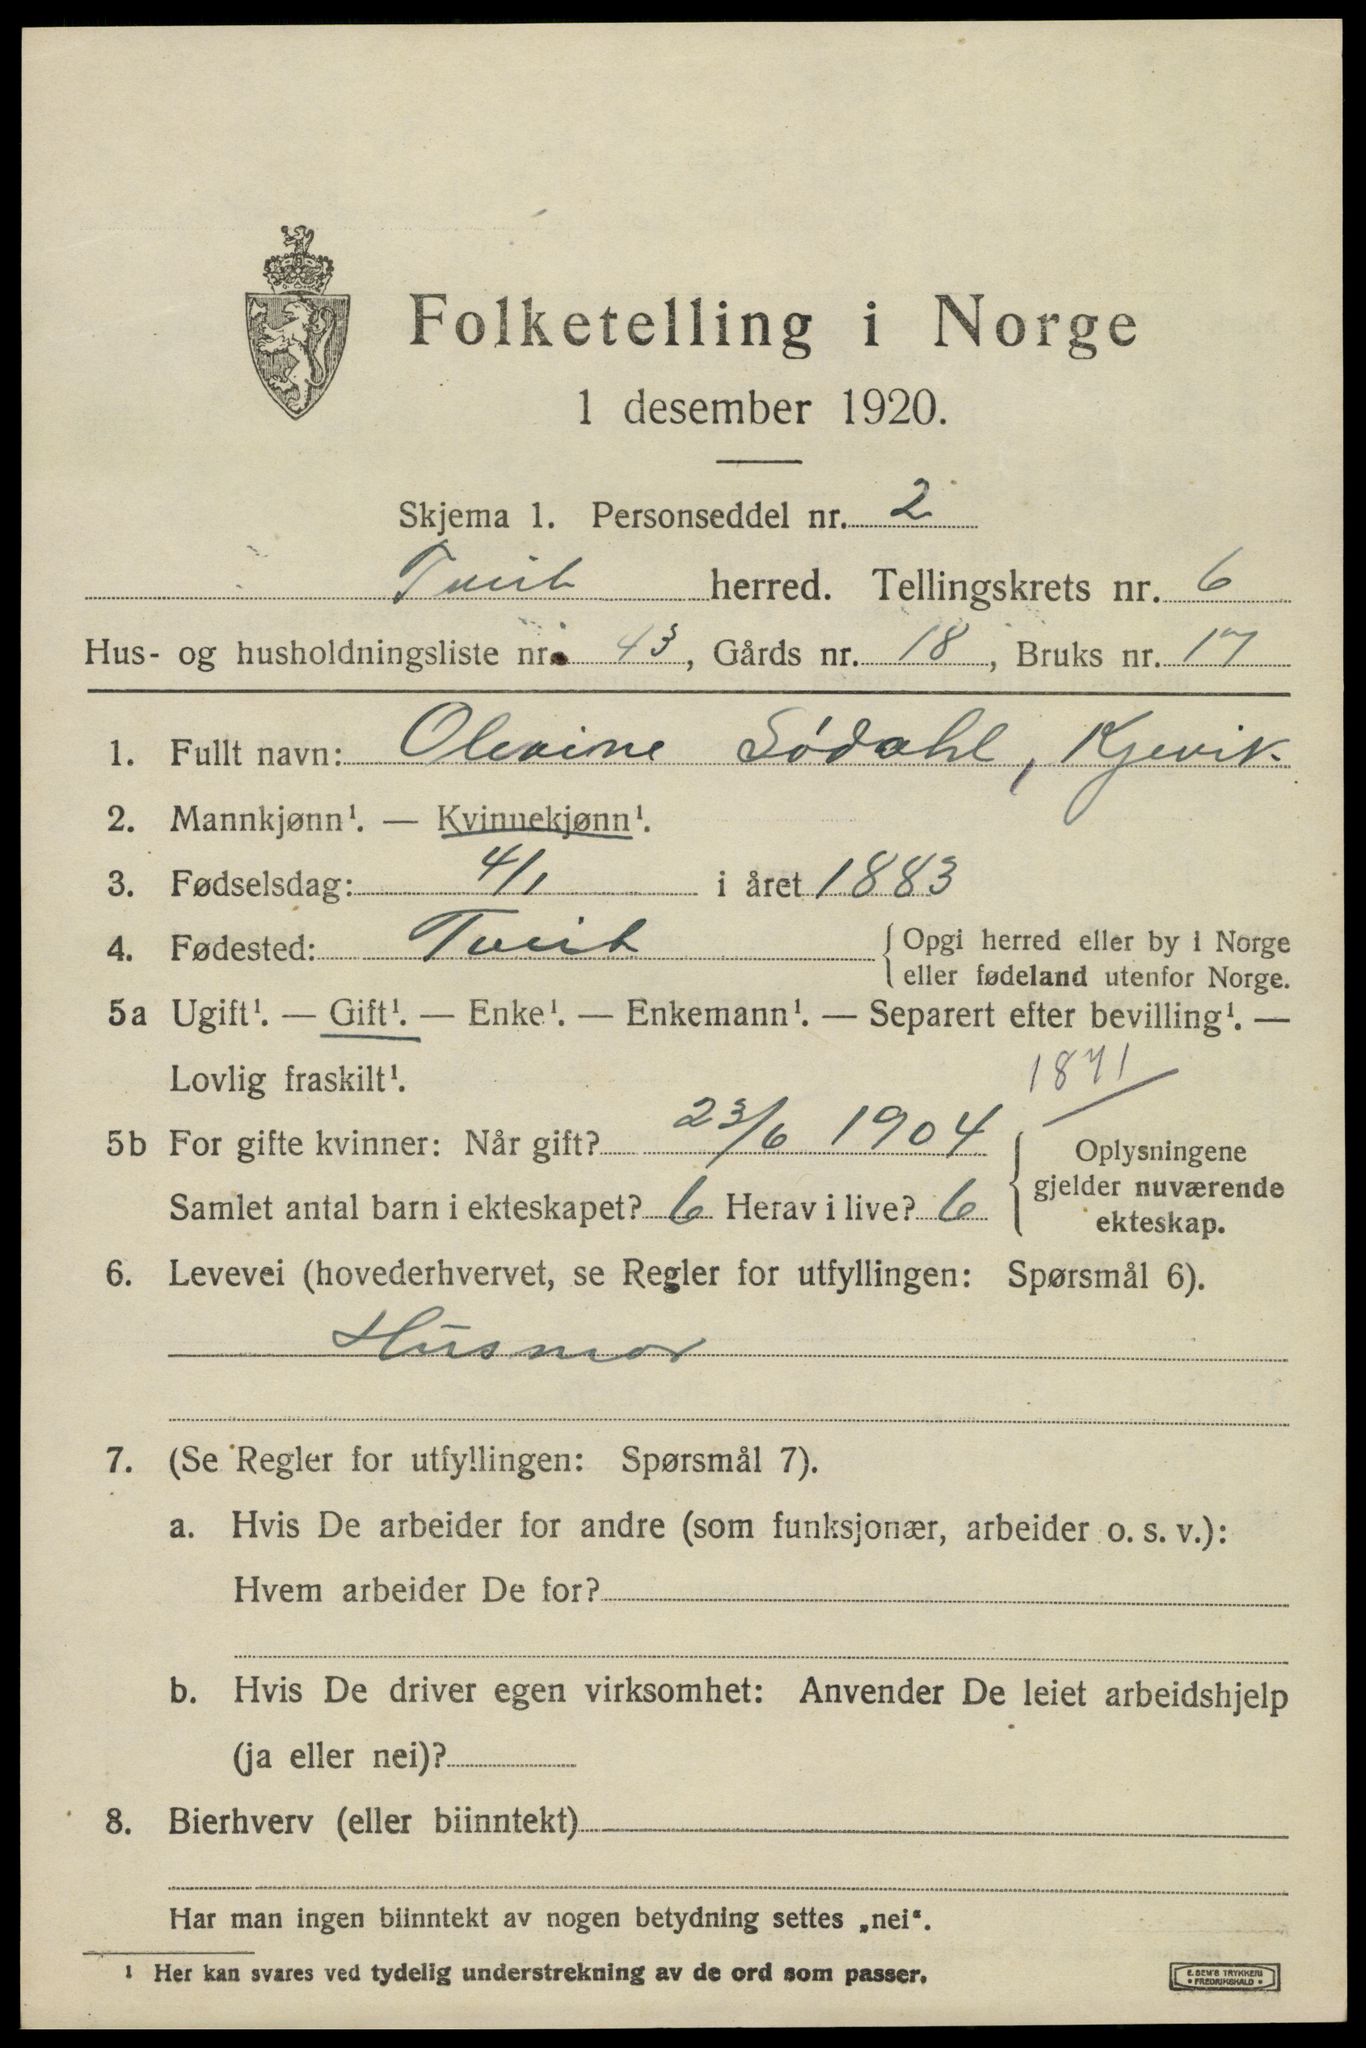 Folketelling i Norge
1 desember 1920.
Skjema 1. Personseddel nr. 2
Tveit herred. Tellingskrets nr. 6
Hus- og husholdningsliste nr. 43, Gårds nr. 18, Bruks nr. 17
1. Fullt navn: Olevine Sødahl, Kjevik
2. Mannkjønn¹. — Kvinnekjønn¹.
3. Fødselsdag: 4/1 i året 1883
4. Fødested: Tveit { Opgi herred eller by i Norge
eller fødeland utenfor Norge.
5a Ugift¹. — Gift¹. — Enke¹. — Enkemann¹. — Separert efter bevilling¹. —
Lovlig fraskilt¹.
1871
5b For gifte kvinner: Når gift? 23/6 1904 { Oplysningene
gjelder nuværende
ekteskap.
Samlet antal barn i ekteskapet? 6 Herav i live? 6
6. Levevei (hovederhvervet, se Regler for utfyllingen: Spørsmål 6).
Husmor
7. (Se Regler for utfyllingen: Spørsmål 7).
a. Hvis De arbeider for andre (som funksjonær, arbeider o. s. v.):
Hvem arbeider De for?
b. Hvis De driver egen virksomhet: Anvender De leiet arbeidshjelp
(ja eller nei)?
8. Bierhverv (eller biinntekt)
Har man ingen biinntekt av nogen betydning settes „nei“.
¹ Her kan svares ved tydelig understrekning av de ord som passer.
E. SEM'S TRYKKERI
• FREDRIKSHALD •